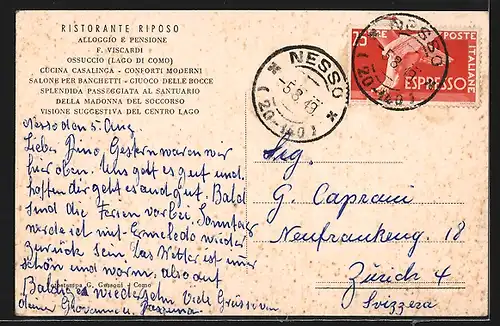 RISTORANTE RIPOSO
ALLOGGIO E PENSIONE
F. VISCARDI
OSSUCCIO (LAGO DI COMO)
CUCINA CASALINGA - CONFORTI MODERNI
SALONE PER BANCHETTI - GIUOCO DELLE BOCCE
SPLENDIDA PASSEGGIATA AL SANTUARIO
DELLA MADONNA DEL SOCCORSO
VISIONE SUGGESTIVA DEL CENTRO LAGO
Nesso den 5. Aug.
Lieber Dino, Gestern waren wir
hier oben. Uns gott es gut und
hoffen dir geht es auch gut. Bald
sind die Ferien vorbei. Sonntag
werde ich mit Ermelodo wieder
zurück sein. Das Wetter ist immer
schön und warm, also auf
Baldiges wiedersehn. Viele Grüsse von
deiner Giovanna u.
G. - Como
NESSO
5.8.49
(20-140)
NESSO
5.8
(20-140)
75 LIRE
ESPRESSO
ITALIANE
Sig.
G. Caprani
Neufrankeng. 18
Zürich 4
Svizzera